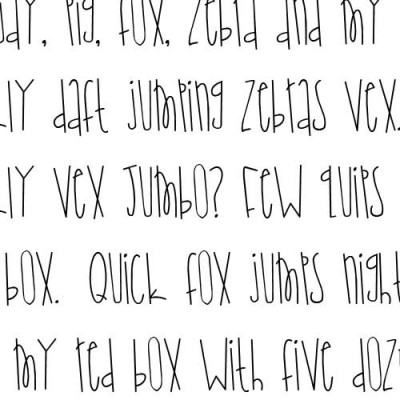 , Pig, FOX, Zebra and my
daft jumping zebras vex.
vex JUMbO? Few quips
box. Quick fox jumps
my red box with five